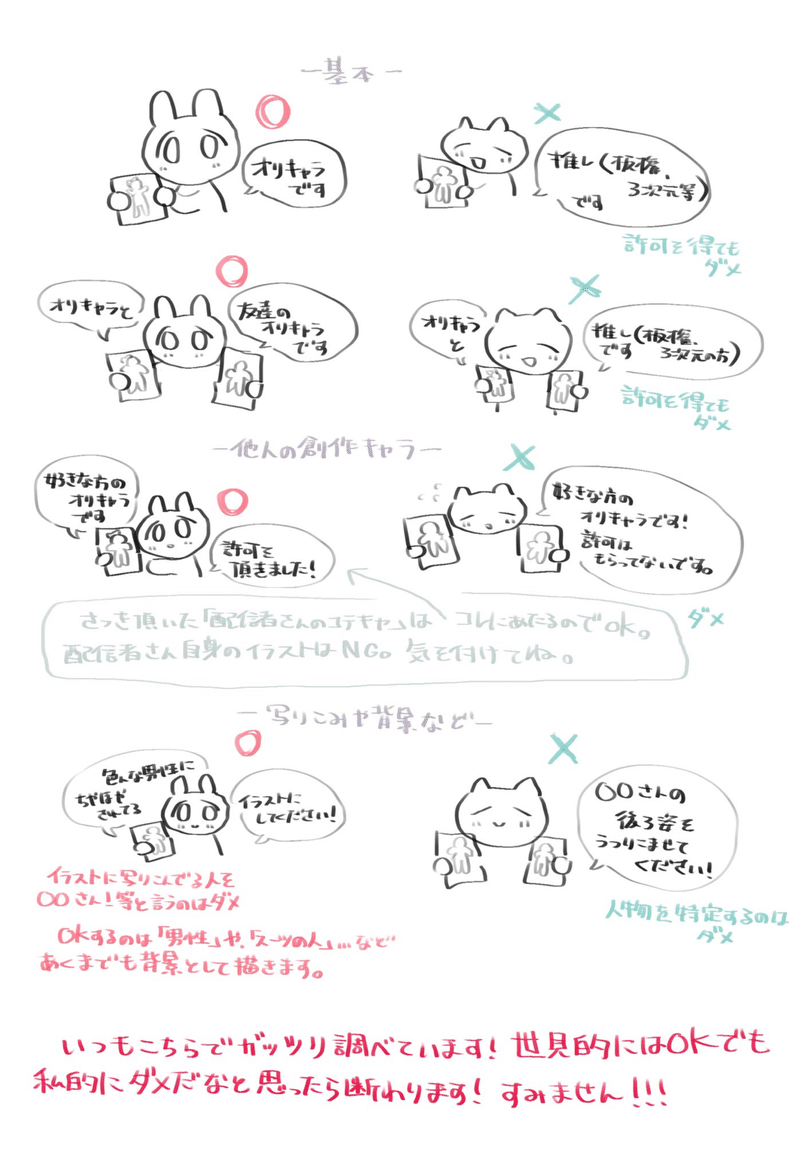 ー基本ー
オリキャラ
です
推し(板権、
3次元等)
です
許可を得ても
ダメ
オリキャラと
友達の
オリキャラ
です
オリキャラ
と
推し(板権、
です 3次元の方)
許可を得ても
ダメ
ー他人の創作キャラー
好きな方の
オリキャラ
です
許可を
頂きました!
好きな方の
オリキャラです!
許可は
もらってないです。
ダメ
さっき頂いた「配信者さんのコテキャ」は コレにあたるのでOK。
配信者さん自身のイラストはNG。気を付けてね。
ー写りこみや背景などー
色んな男性に
ちやほや
されてる
イラストに
してください!
〇〇さんの
後ろ姿を
うつりこませて
ください!
イラストに写りこんでる人を
〇〇さん!等と言うのはダメ
OKするのは「男性」や、「スーツの人」…など
あくまでも背景として描きます。
人物を特定するのは
ダメ
いつもこちらでガッツリ調べています!世見的にはOKでも
私的にダメだなと思ったら断わります!すみません!!!